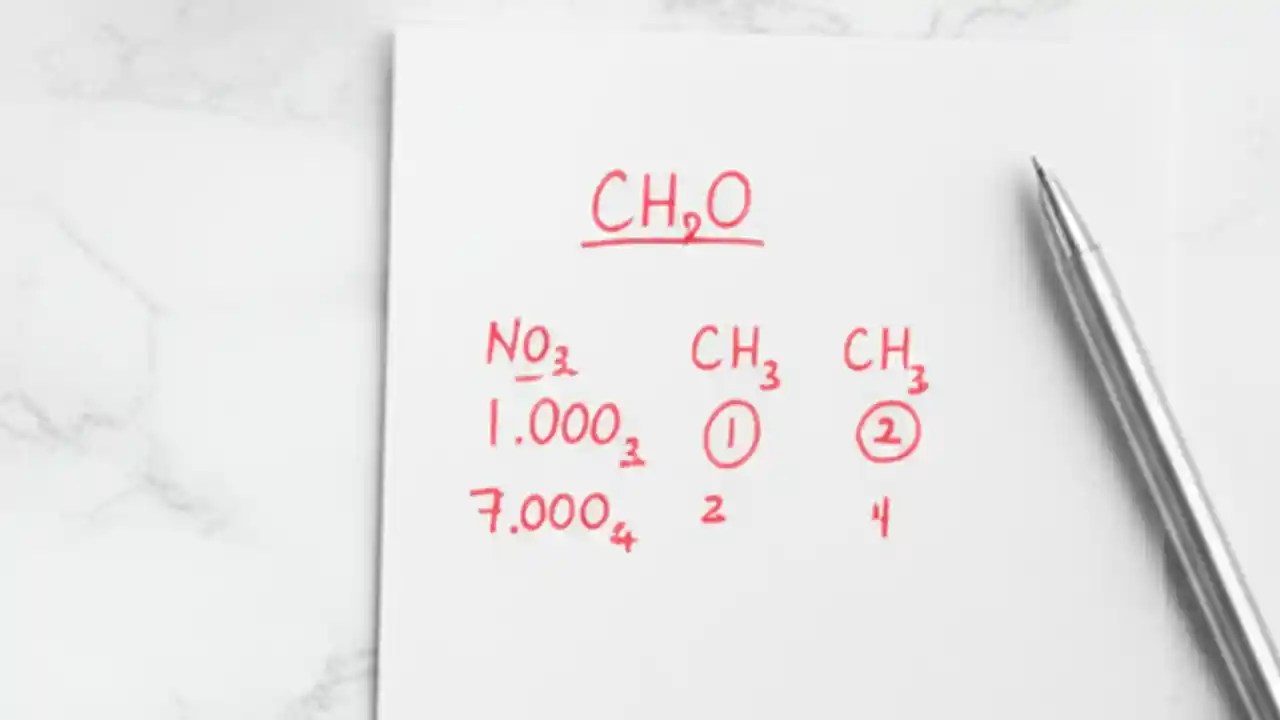 CH₂O
NO₃ CH₃ CH₃
1.000₃ ① ②
7.000₄ 2 4